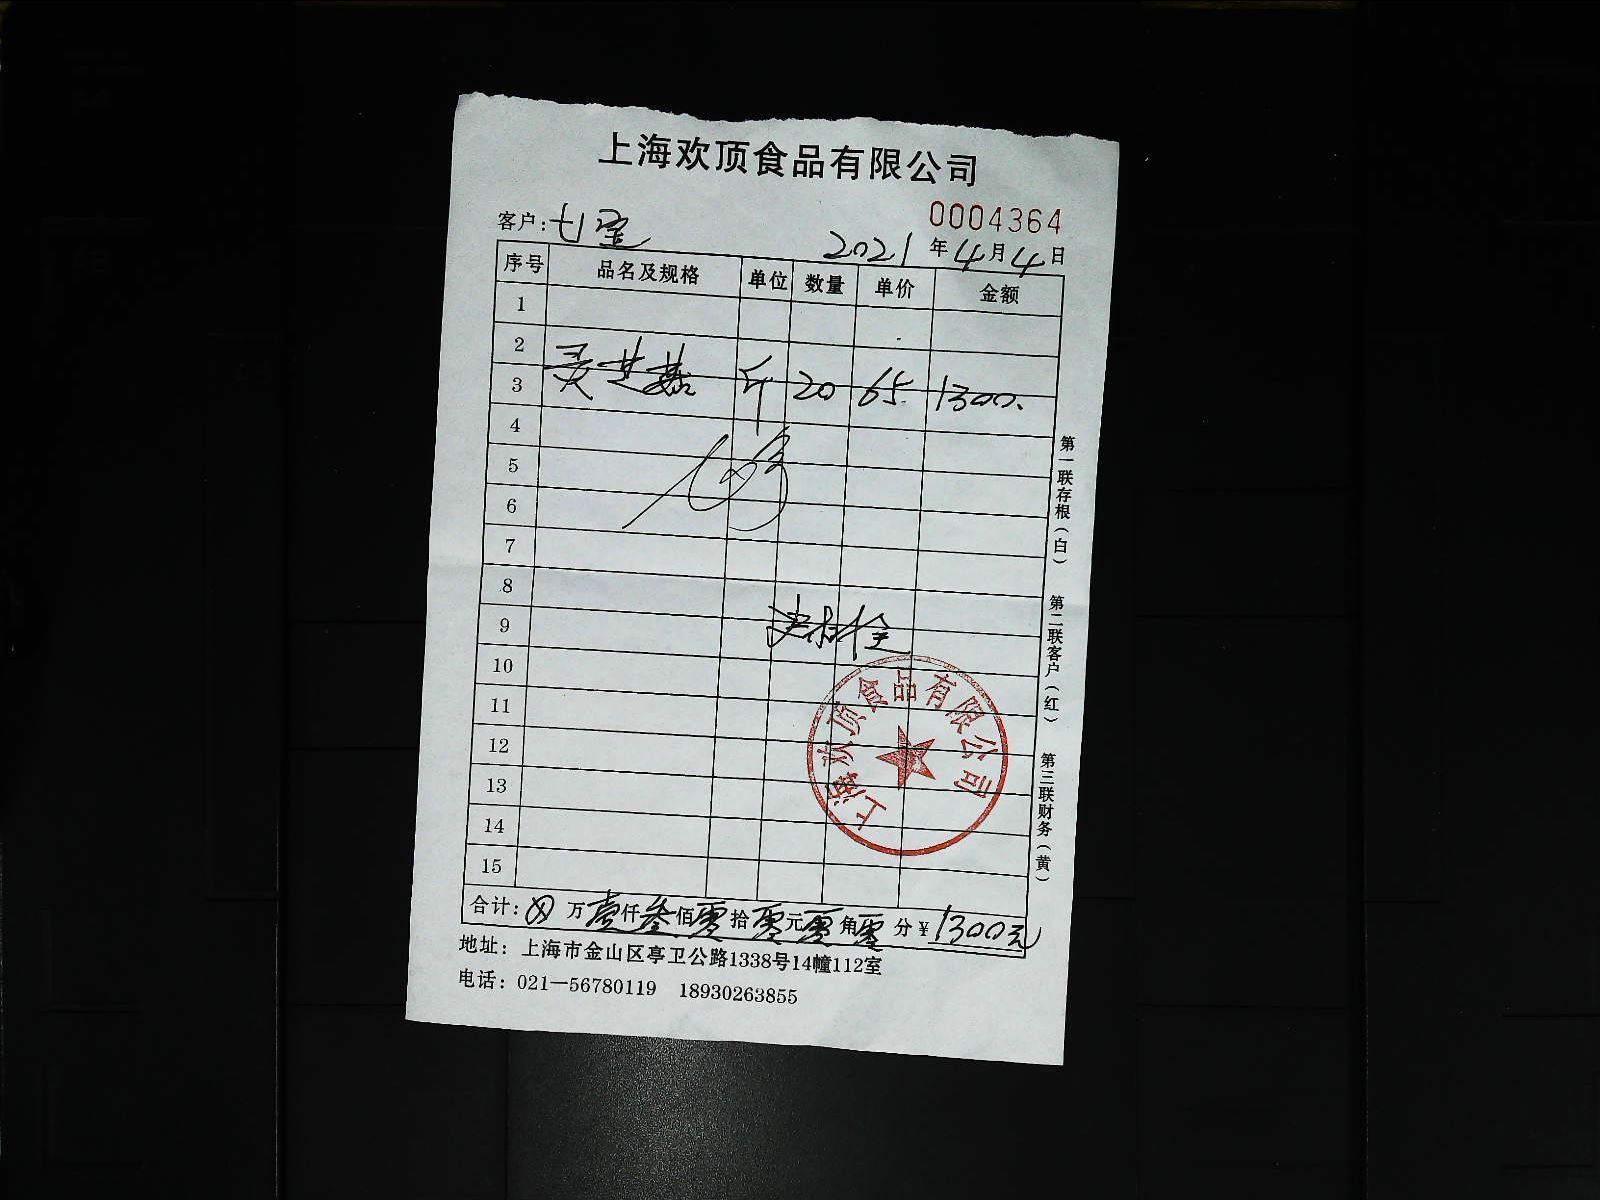 上海欢顶食品有限公司
0004364
客户：七宝
2021年4月4日
序号 品名及规格 单位 数量 单价 金额
1
2
3 灵芝菇 斤 20 65. 1300.
4
5
6
7
8
9
10
11
12
13
14
15
上海欢顶食品有限公司
合计：⊗万壹仟叁佰零拾零元零角零分￥1300元
地址：上海市金山区亭卫公路1338号14幢112室
电话：021—56780119 18930263855
第一联存根（白）
第二联客户（红）
第三联财务（黄）